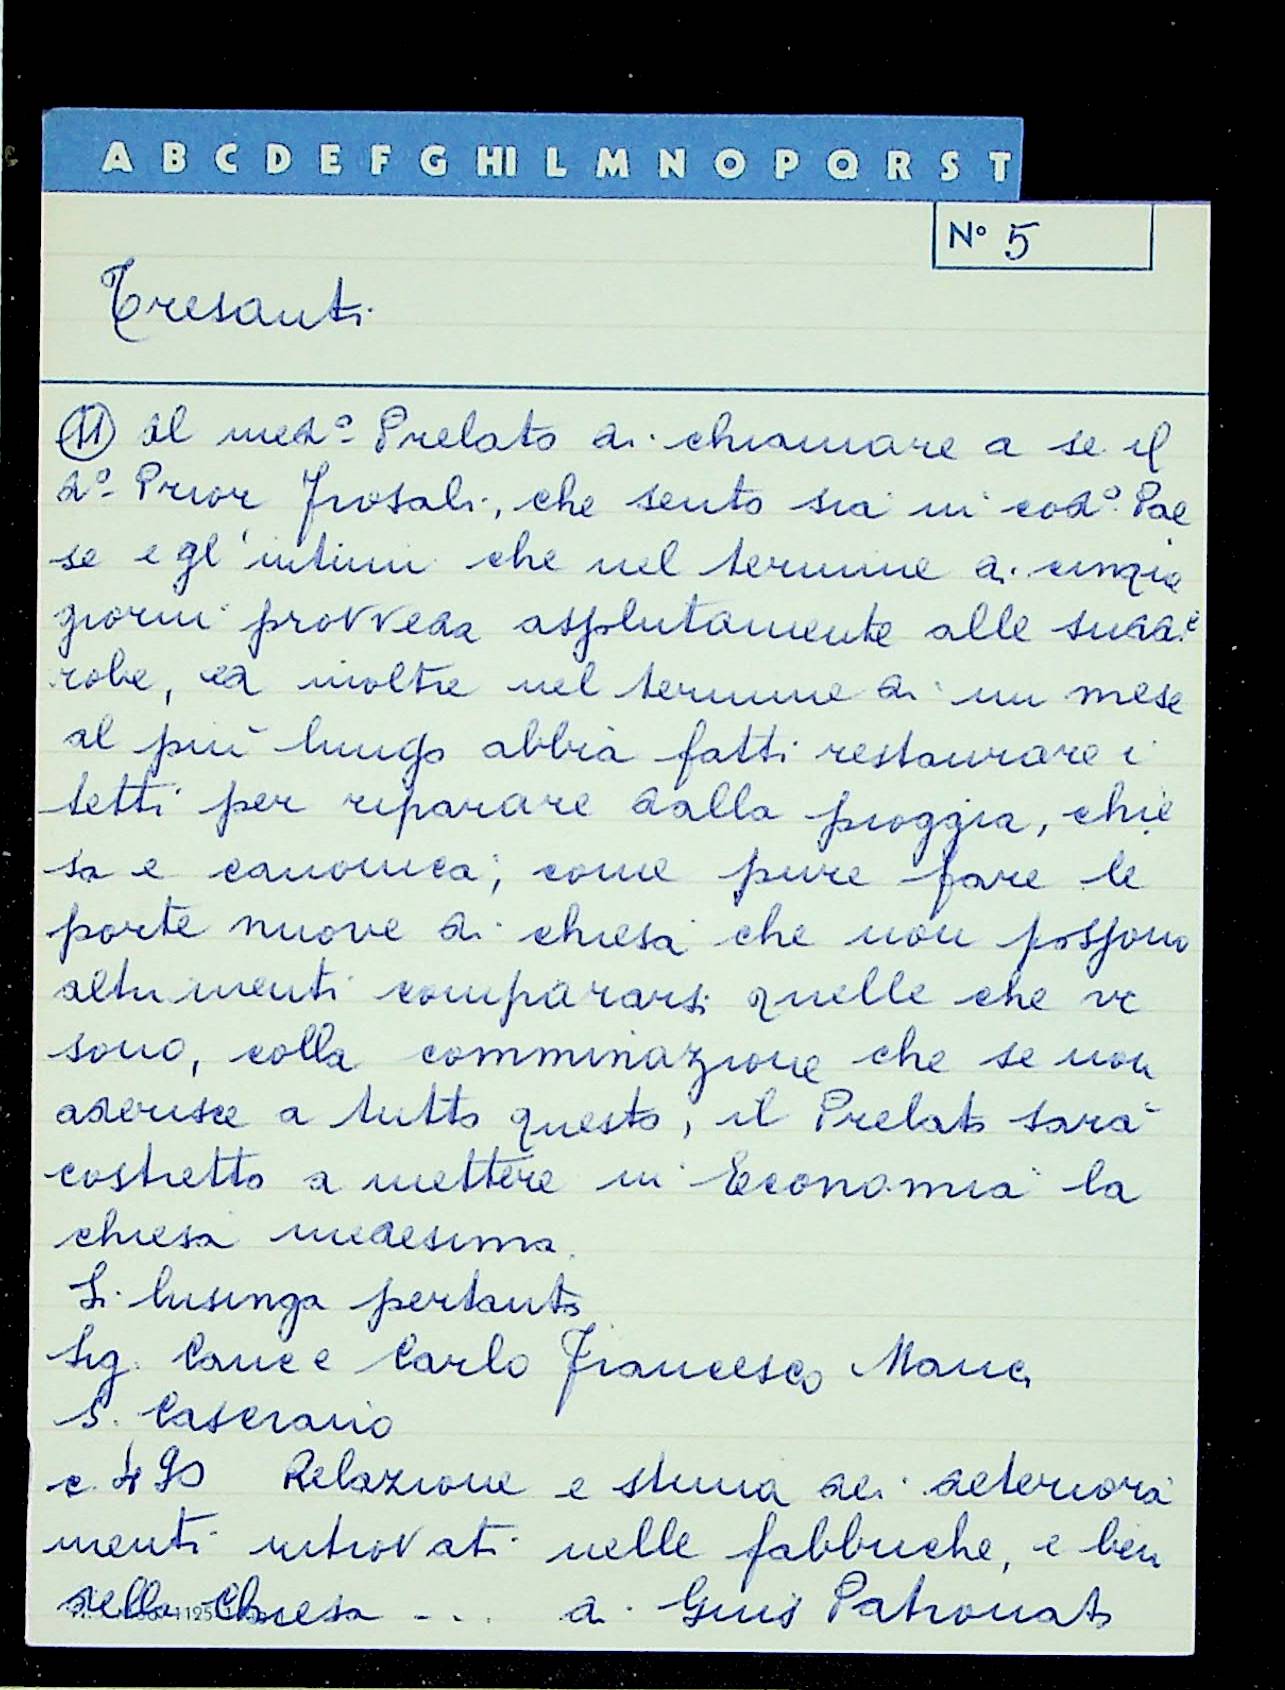 A B C D E F G HI L M N O P Q R S T
N° 5
Tresanti
(11) al med.° Prelato di chiamare a se il
d.° Prior Frosali, che sento sia in cod.° Pae
se e gl'intimi che nel termine di cinque
giorni provveda assolutamente alle sudd.e
robe, ed inoltre nel termine di un mese
al più lungo abbia fatti restaurare i
tetti per riparare dalla pioggia, chie
sa e canonica; come pure fare le
porte nuove di chiesa che non possono
altrimenti compararsi quelle che vi
sono, colla comminazione che se non
aderisce a tutto questo, il Prelato sarà
costretto a mettere in Economia la
chiesa medesima.
Si lusinga pertanto
Sig. Canc e Carlo Francesco
S. Casciano
c. 490 Relazione e stima dei deteriora
menti ritrovati nelle fabbriche, e beni
della Chiesa ... di Gius Patronato